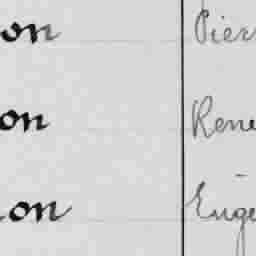 on Pierr
on Rene
on Euge